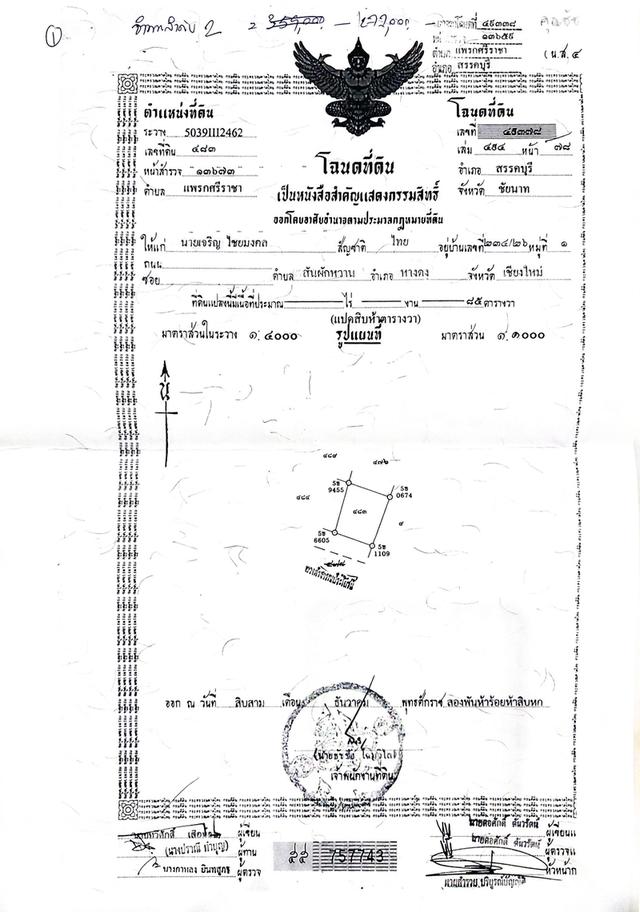 ๑
2
โฉนดที่ ๔๕๓๓๘
๑๓๖๕๙
ตำบล แพรกศรีราชา
อำเภอ สรรคบุรี
(น.ส.๔
ตำแหน่งที่ดิน
ระวาง 5039III2462
เลขที่ดิน ๔๘๓
หน้าสำรวจ ๑๓๖๗๓
ตำบล แพรกศรีราชา
โฉนดที่ดิน
เลขที่ ๔๕๓๗๘
เล่ม ๔๕๔ หน้า ๗๘
อำเภอ สรรคบุรี
จังหวัด ชัยนาท
โฉนดที่ดิน
เป็นหนังสือสำคัญแสดงกรรมสิทธิ์
ออกโดยอาศัยอำนาจตามประมวลกฎหมายที่ดิน
ให้แก่ นายเจริญ ไชยมงคล สัญชาติ ไทย อยู่บ้านเลขที่ ๒๓๔/๒๖ หมู่ที่ ๑
ถนน
ซอย ตำบล สันผักหวาน อำเภอ หางดง จังหวัด เชียงใหม่
ที่ดินแปลงนี้มีเนื้อที่ประมาณ ไร่ งาน ๘๕ ตารางวา
(แปดสิบห้าตารางวา)
มาตราส่วนในระวาง ๑:๔๐๐๐ รูปแผนที่ มาตราส่วน ๑:๑๐๐๐
น
๔๘๙
๔๗๖
5ช
9455
5ช
0674
๔๘๔
๔๘๓
๙
5ช
6605
5ช
1109
ออก ณ วันที่ สิบสาม เดือน ธันวาคม พุทธศักราช สองพันห้าร้อยห้าสิบหก
เจ้าพนักงานที่ดิน
ผู้เขียน
(นางปราณี ทำบุญ) ผู้ทาน
ผู้ตรวจ
๕๕ 757743
นายต่อศักดิ์ ตันวรัตน์ ผู้เขียนแ
นายต่อศักดิ์ ตันวรัตน์ ผู้ตรวจแ
หัวหน้าก